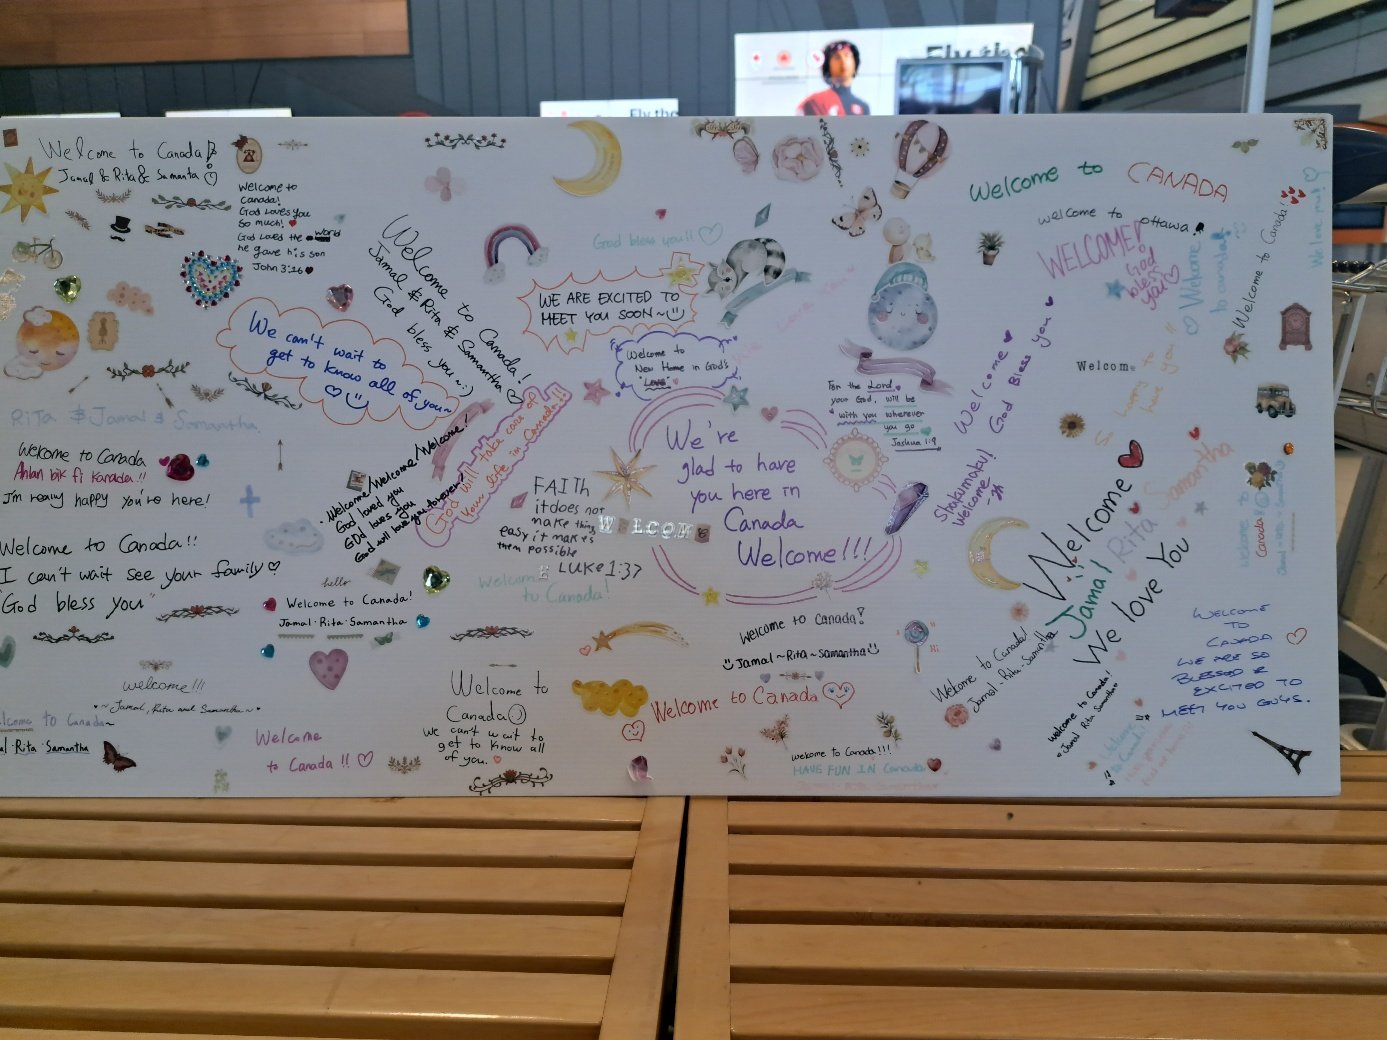 Fly the
Fly the
Welcome to Canada!
Jamal & Rita & Samanta
Welcome to
Canada!
God Loves you
so much!
God loved the world
he gave his son
John 3:16
Welcome to Canada!
Jamal & Rita & Samantha
God bless you ~:)
God bless you!!
WE ARE EXCITED TO
MEET YOU SOON~
We can't wait to
get to know all of you~
Welcome to
New Home in God's
"Love"
Welcome to CANADA
welcome to ottawa
WELCOME!
God
bless
you
Welcome
to canada!
Welcome to Canada!
We love you!
Welcome
God Bless you
Welcome
So happy to
have you!!
For the Lord
your God, will be
with you wherever
you go
Joshua 1:9
Rita & Jamal & Samantha
Welcome to Canada
Ahlan bik fi Kanada!!
I'm really happy you're here!
Welcome/Welcome/Welcome!
God loved you
God loves you
God will love you forever
God will take care of
your life in Canada!!
FAITH
it does not
make thing
easy it makes
them possible
LUKE 1:37
WELCOME
We're
glad to have
you here in
Canada
Welcome!!!
Shakumaku!
Welcome
Welcome
Jamal Rita Samantha
We love you
Welcome to
Canada
Welcome to Canada!!
I can't wait see your family
"God bless you"
hello
Welcome to Canada!
Jamal·Rita·Samantha
Welcome
to Canada!
Welcome to Canada!
Jamal~Rita~Samantha
Hi
Hi
Welcome to Canada!
Jamal·Rita·Samantha
WELCOME
TO
CANADA
WE ARE SO
BLESSED &
EXCITED TO
MEET YOU GUYS.
welcome!!!
~Jamal, Rita and Samantha~
Welcome to Canada~
al·Rita·Samantha
Welcome
to Canada!!
Welcome to
Canada
We can't wait to
get to know all
of you.
Welcome to Canada
welcome to Canada!!!
HAVE FUN IN Canada
welcome to Canada!
Jamal Rita Samantha